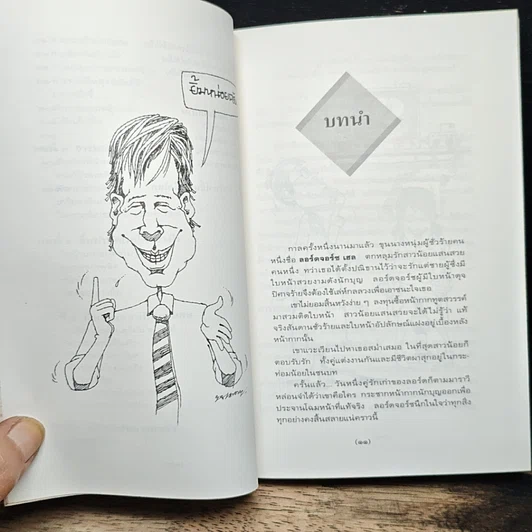 ยิ้มหน่อยครับ
บทนำ
กาลครั้งหนึ่งนานมาแล้ว ขุนนางหนุ่มผู้ชั่วร้ายคน
หนึ่งชื่อ ลอร์ดจอร์ช เฮล ตกหลุมรักสาวน้อยแสนสวย
คนหนึ่ง ทว่าเธอได้ตั้งปณิธานไว้ว่าจะรักแต่ชายผู้ซึ่งมี
ใบหน้างามดังนักบุญ ลอร์ดจอร์ชผู้มีใบหน้าดุจ
ปีศาจร้ายจึงต้องใช้เล่ห์กลลวงเพื่อเอาชนะใจเธอ
เขาไม่ยอมสิ้นหวังง่าย ๆ ลงทุนซื้อหน้ากากทูตสวรรค์
มาสวมติดใบหน้า สาวน้อยแสนสวยจะได้ไม่รู้ว่า แท้
จริงสันดานชั่วร้ายและใบหน้าอัปลักษณ์แฝงอยู่เบื้องหลัง
หน้ากากนั้น
เขาแวะเวียนไปหาเธอสม่ำเสมอ ในที่สุดสาวน้อยก็
ตอบรับรัก ทั้งคู่แต่งงานกันและมีชีวิตผาสุกอยู่ในกระ-
ท่อมน้อยในชนบท
ครั้นแล้ว... วันหนึ่งคู่รักเก่าของลอร์ดก็ตามมาราวี
หล่อนจำได้ว่าเขาคือใคร กระชากหน้ากากนักบุญออกเพื่อ
ประจานโฉมหน้าที่แท้จริง ลอร์ดจอร์ชนึกในใจว่าทุกสิ่ง
ทุกอย่างคงสิ้นสลายแน่คราวนี้
(๑๑)